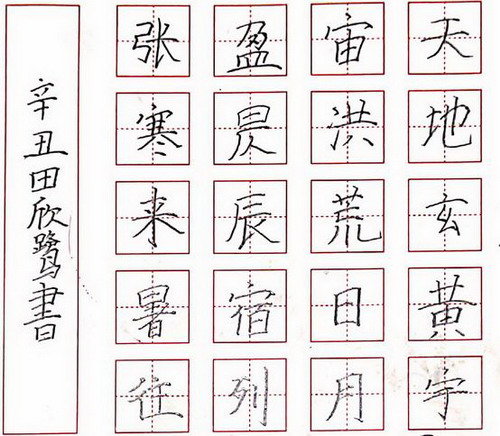 天地玄黃宇
宙洪荒日月
盈昃辰宿列
张寒来暑往
辛丑田欣鹭書